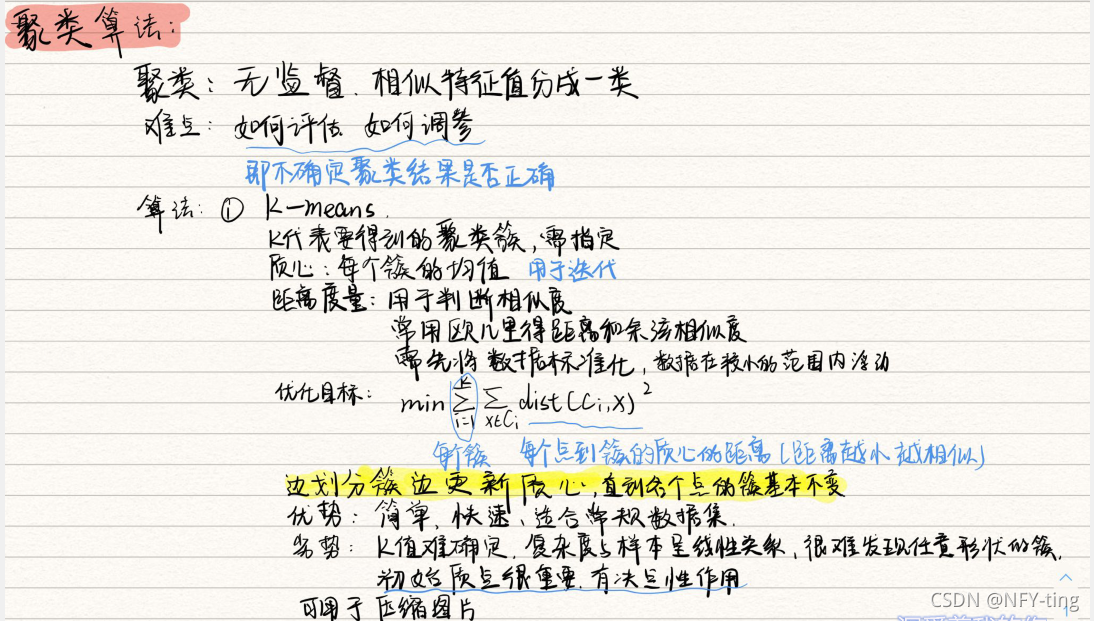 聚类算法：
聚类：无监督．相似特征值分成一类
难点：如何评估 如何调参
即不确定聚类结果是否正确
算法：① K-means．
K代表要得到的聚类簇，需指定
质心：每个簇的均值 用于迭代
距离度量：用于判断相似度
常用欧几里得距离和余弦相似度
需先将数据标准化，数据在较小的范围内浮动
优化目标：min K∑i=1 ∑x∈Ci dist(Ci,x)²
每个簇 每个点到簇的质心的距离（距离越小越相似）
边划分簇边更新质心，直到各个点的簇基本不变
优势：简单，快速，适合常规数据集．
劣势：K值难确定，复杂度与样本呈线性关系，很难发现任意形状的簇，
初始质点很重要，有决定性作用
可用于压缩图片
CSDN @NFY-ting